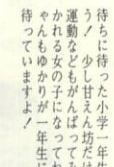 待ちに待った小学一年生
う！　少し甘えん坊だけ
運動などもがんばってか
かれる女の子になってね
ゃんもゆかりが一年生に
待っていますよ！